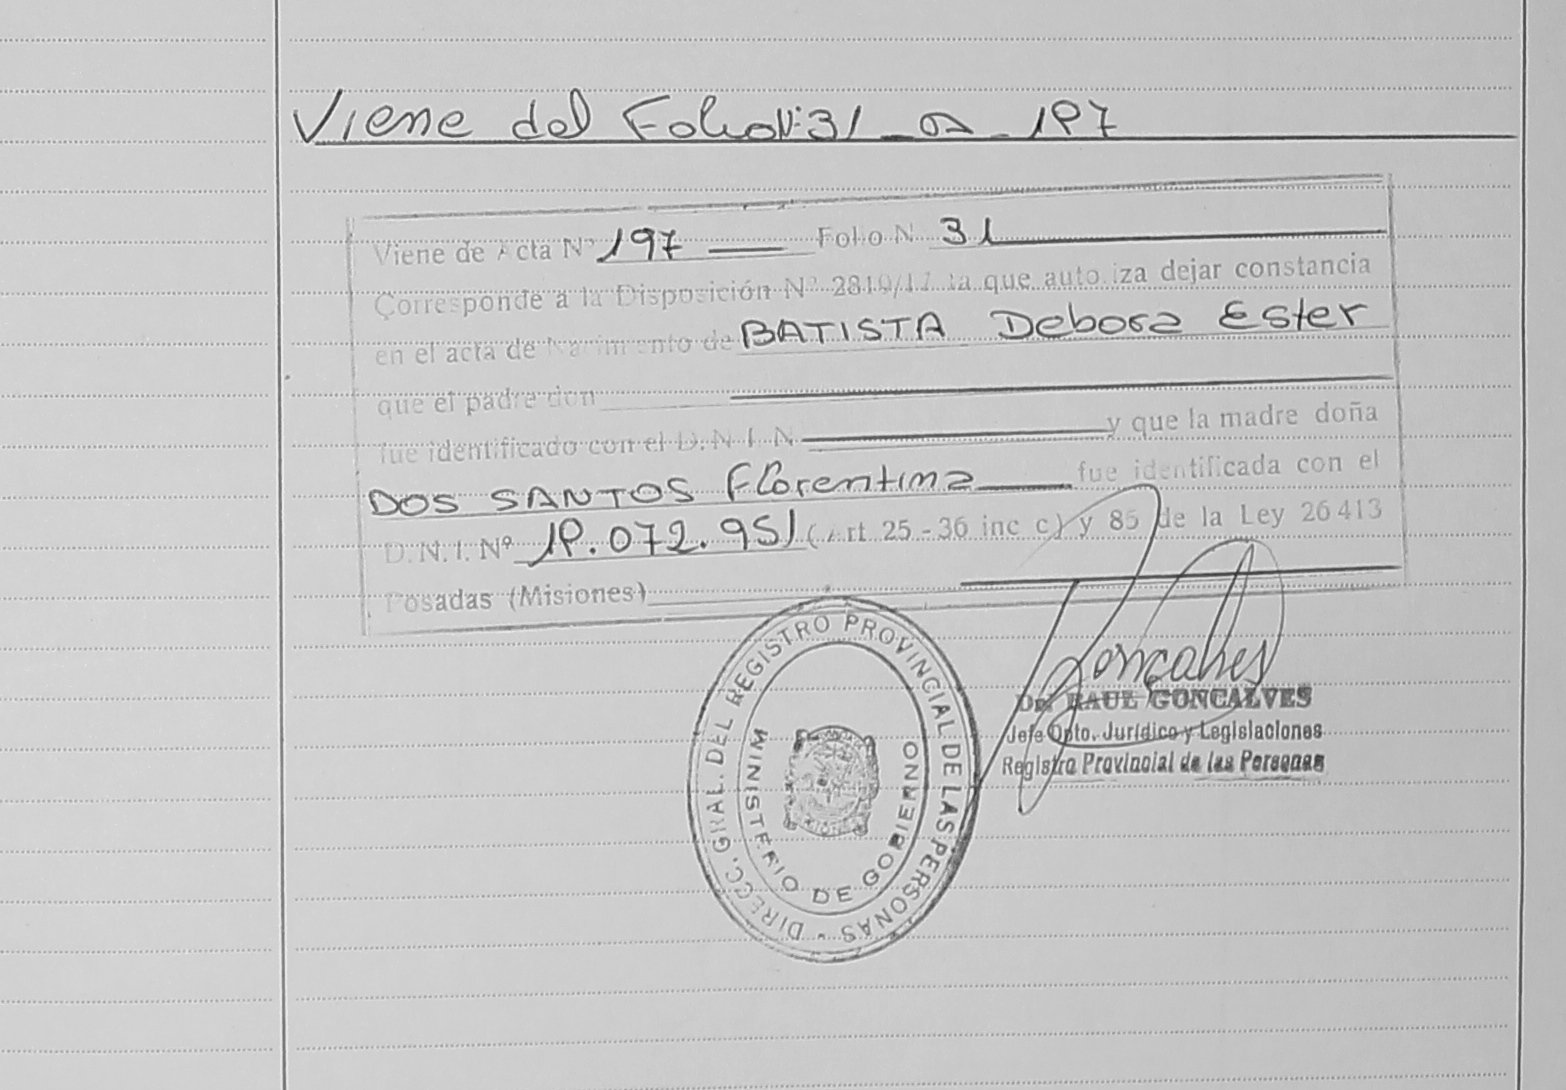 Viene del Folio Nº 31 - 197
Viene de Acta Nº 197 Folio N 31
Corresponde a la Disposición Nº 2810/17 la que autoriza dejar constancia
en el acta de Nacimiento de BATISTA Debora Ester
que el padre don
fue identificado con el D.N.I. N y que la madre doña
DOS SANTOS Florentina fue identificada con el
D.N.I. Nº 19.072.951 (Art 25-36 inc c) y 85 de la Ley 26413
Posadas (Misiones)
DIRECC. GRAL. DEL REGISTRO PROVINCIAL DE LAS PERSONAS -
MINISTERIO DE GOBIERNO
Goncalves
Dr. RAUL GONCALVES
Jefe Dpto. Jurídico y Legislaciones
Registro Provincial de las Personas